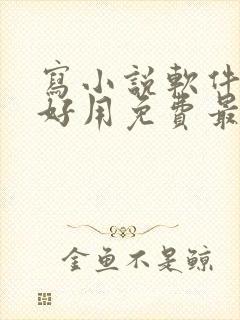 寫小說軟件
好用免費最
金魚不是鯨